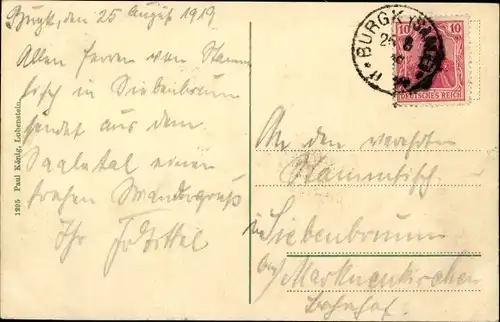 Burgk, den 25 August 1919
Allen Herren vom Stamm-
tisch in Siebenbrunn
sendet aus dem
Saaletal einen
frohen Wandergruß
Ihr
1295 Paul König, Lobenstein.
BURGK (SAALE)
25 8
10 10
DEUTSCHES REICH
An den verehrten
Stammtisch
in Siebenbrunn
bei Markneukirchen
Bahnhof.